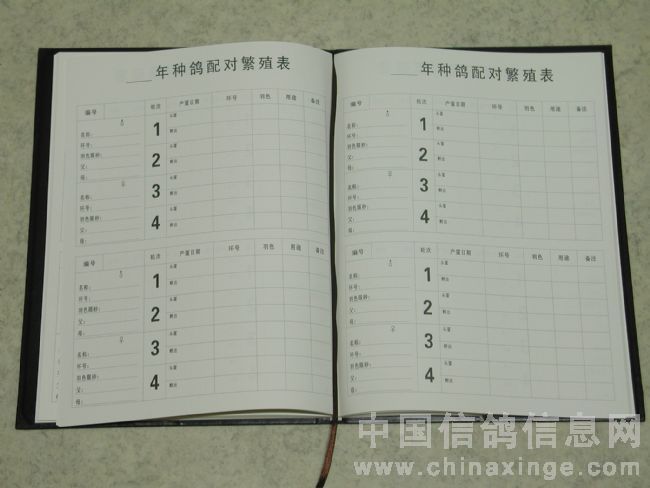 ____年种鸽配对繁殖表
编号 轮次 产蛋日期 环号 羽色 用途 备注
♂ 1 头蛋
名称:
环号: 孵出
羽色眼砂: 2 头蛋
父:
母: 孵出
♀ 3 头蛋
名称:
环号: 孵出
羽色眼砂: 4 头蛋
父:
母: 孵出
编号 轮次 产蛋日期 环号 羽色 用途 备注
♂ 1 头蛋
名称:
环号: 孵出
羽色眼砂: 2 头蛋
父:
母: 孵出
♀ 3 头蛋
名称:
环号: 孵出
羽色眼砂: 4 头蛋
父:
母: 孵出
____年种鸽配对繁殖表
编号 轮次 产蛋日期 环号 羽色 用途 备注
♂ 1 头蛋
名称:
环号: 孵出
羽色眼砂: 2 头蛋
父:
母: 孵出
♀ 3 头蛋
名称:
环号: 孵出
羽色眼砂: 4 头蛋
父:
母: 孵出
编号 轮次 产蛋日期 环号 羽色 用途 备注
♂ 1 头蛋
名称:
环号: 孵出
羽色眼砂: 2 头蛋
父:
母: 孵出
♀ 3 头蛋
名称:
环号: 孵出
羽色眼砂: 4 头蛋
父:
母: 孵出
中国信鸽信息网
www.chinaxinge.com